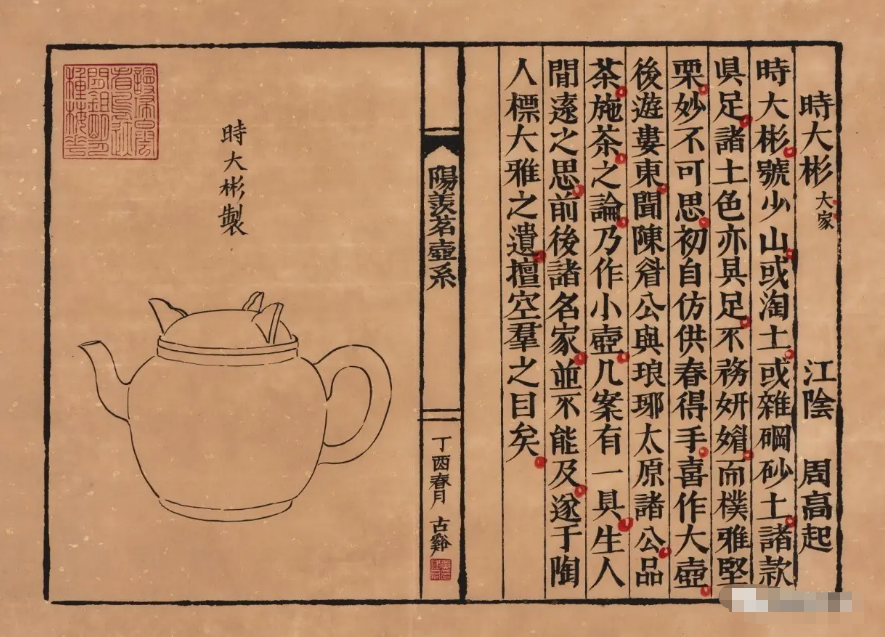 時大彬 大家 江陰 周高起
時大彬號少山或淘土或雜碙砂土諸款
具足諸土色亦具足不務妍媚而樸雅堅
栗妙不可思初自仿供春得手喜作大壺
後遊婁東聞陳眉公與琅琊太原諸公品
茶施茶之論乃作小壺几案有一具生人
閒遠之思前後諸名家並不能及遂于陶
人標大雅之遺擅空羣之目矣
陽羨茗壺系
丁酉春月 古谿
時大彬製